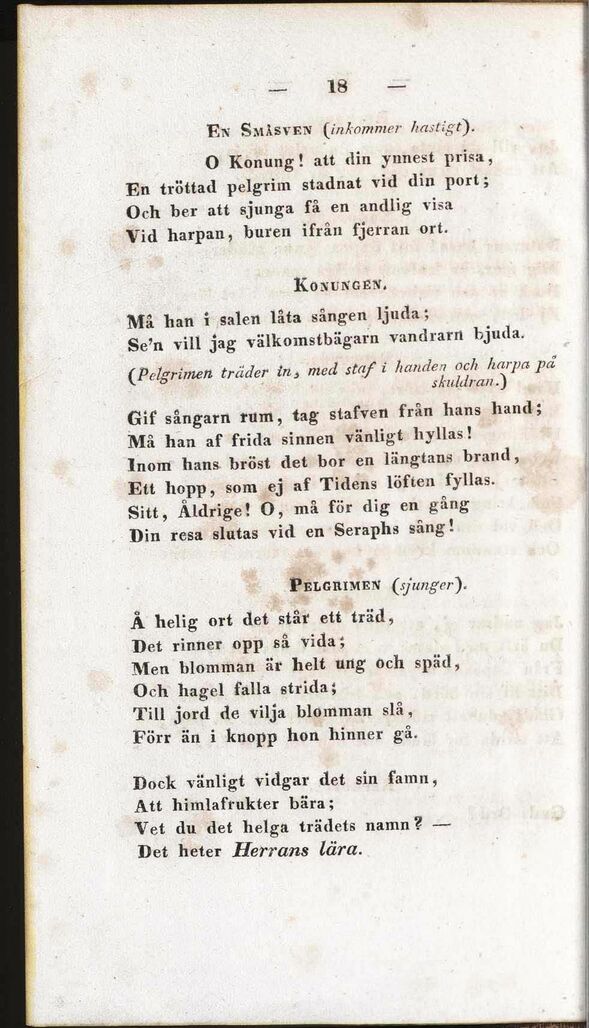 — 18 —
EN SMÅSVEN (inkommer hastigt).
O Konung! att din ynnest prisa,
En tröttad pelgrim stadnat vid din port;
Och ber att sjunga få en andlig visa
Vid harpan, buren ifrån fjerran ort.
KONUNGEN.
Må han i salen låta sången ljuda;
Se'n vill jag välkomstbägarn vandrarn bjuda.
(Pelgrimen träder in, med staf i handen och harpa på
skuldran.)
Gif sångarn rum, tag stafven från hans hand;
Må han af frida sinnen vänligt hyllas!
Inom hans bröst det bor en längtans brand,
Ett hopp, som ej af Tidens löften fyllas.
Sitt, Åldrige! O, må för dig en gång
Din resa slutas vid en Seraphs sång!
PELGRIMEN (sjunger).
Å helig ort det står ett träd,
Det rinner opp så vida;
Men blomman är helt ung och späd,
Och hagel falla strida;
Till jord de vilja blomman slå,
Förr än i knopp hon hinner gå.
Dock vänligt vidgar det sin famn,
Att himlafrukter bära;
Vet du det helga trädets namn? —
Det heter Herrans lära.